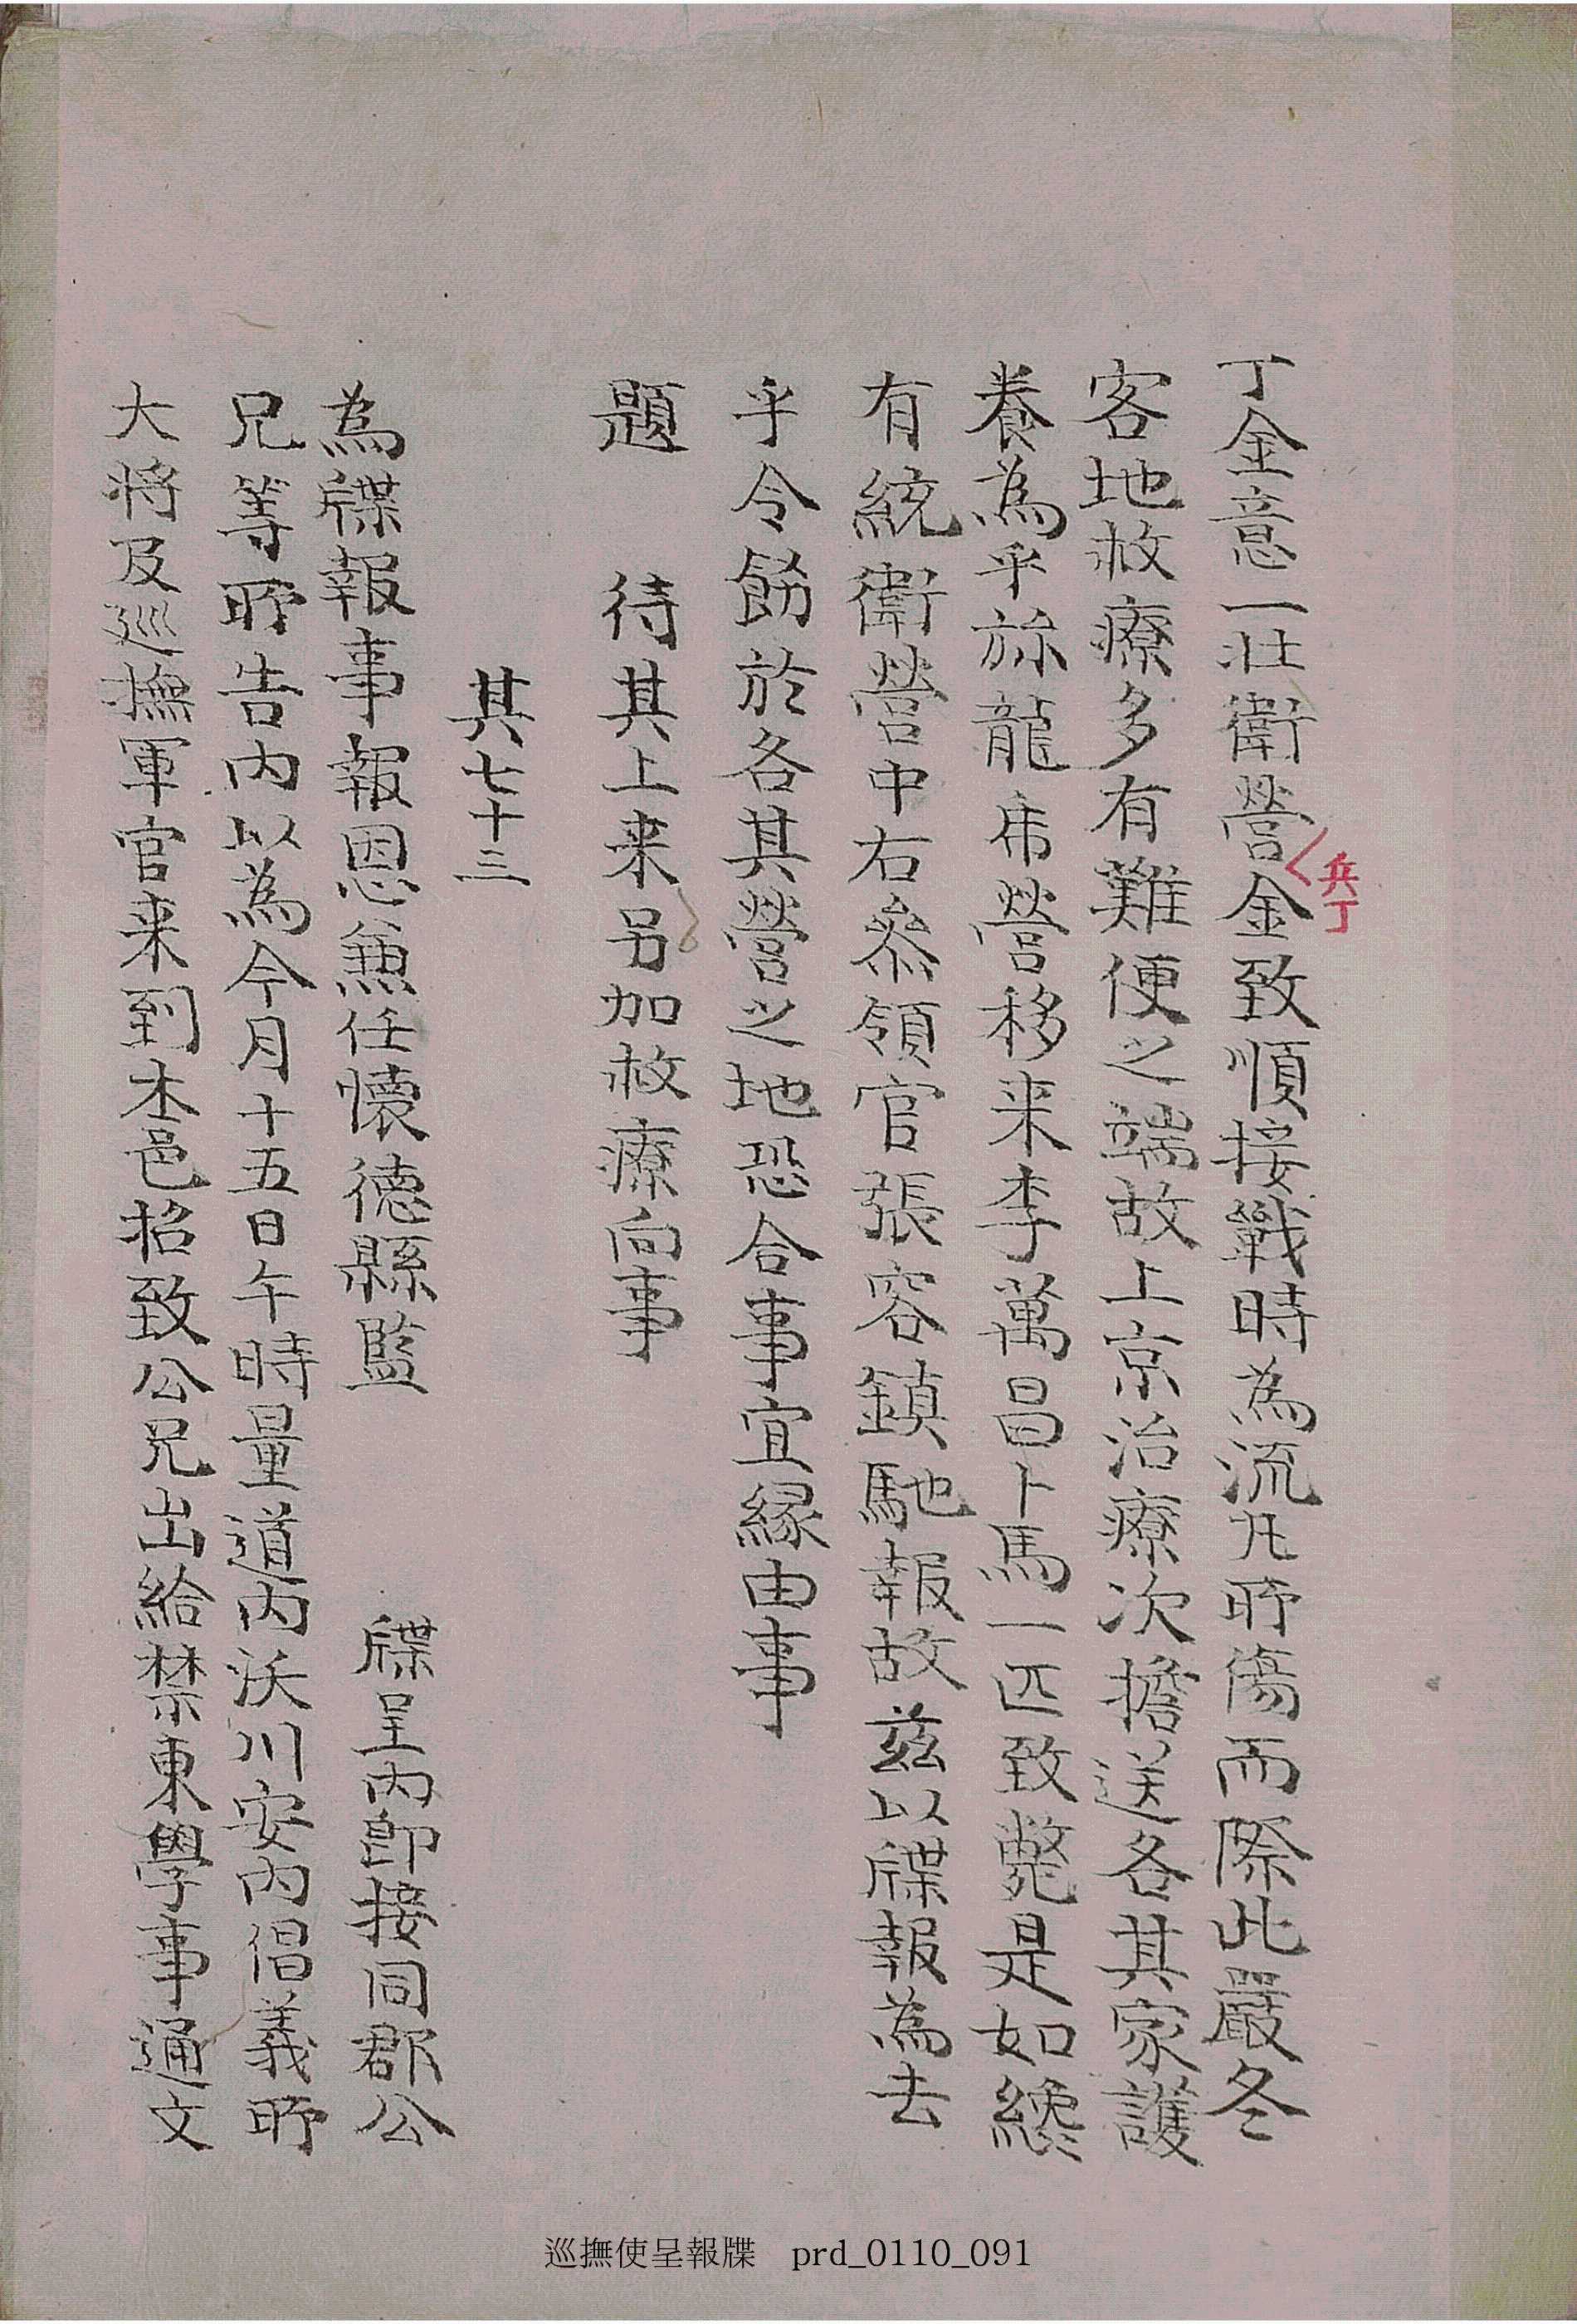 丁金意一壯衛營金致順接戰時為流丸所傷而際此嚴冬
兵丁
客地救療多有難便之端故上京治療次擔送各其家護
養為乎旀龍帍營移来李萬昌卜馬一匹致斃是如緣
有統衛營中右叅領官張容鎮馳報故玆以牒報為去
乎令飭於各其營之地恐合事宜縁由事
題 待其上来另加救療向事
其七十三
為牒報事報恩兼任懷德縣監 牒呈內即接同郡公
兄等所告內以為今月十五日午時量道內沃川安內倡義所
大將及巡撫軍官来到本邑招致公兄出給禁東學事通文
巡撫使呈報牒 prd_0110_091